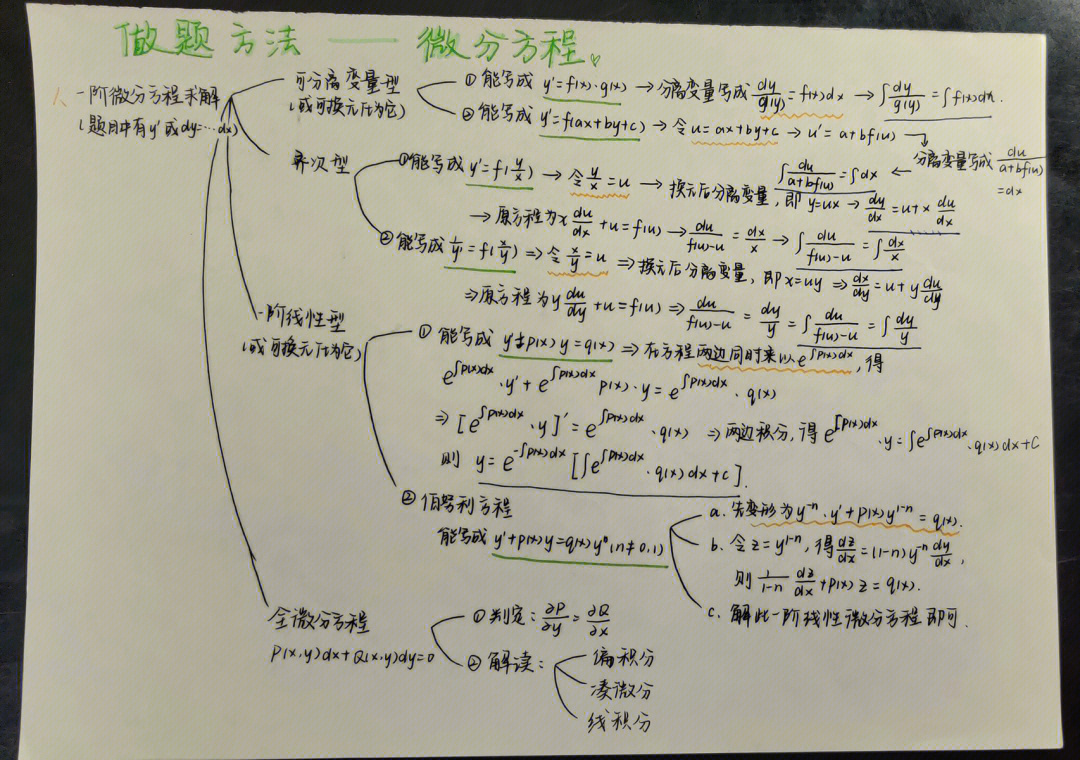 做题方法 —— 微分方程。
一阶微分方程求解
(题目中有y'或dy=…dx)
可分离变量型
(或可换元化为它)
① 能写成 y'=f(x)·g(x) → 分离变量写成 dy/g(y)=f(x)dx → ∫dy/g(y)=∫f(x)dx.
② 能写成 y'=f(ax+by+c) → 令u=ax+by+c → u'=a+bf(u)
分离变量写成 du/(a+bf(u))=dx
← ∫du/(a+bf(u))=∫dx
齐次型
① 能写成 y'=f(y/x) → 令 y/x=u → 换元后分离变量, 即 y=ux → dy/dx=u+x du/dx
→ 原方程为x du/dx+u=f(u) → du/(f(u)-u)=dx/x → ∫du/(f(u)-u)=∫dx/x
② 能写成 1/y'=f(x/y) ⇒ 令 x/y=u ⇒ 换元后分离变量, 即x=uy ⇒ dx/dy=u+y du/dy
⇒ 原方程为y du/dy+u=f(u) ⇒ du/(f(u)-u)=dy/y=∫du/(f(u)-u)=∫dy/y
一阶线性型
(或可换元化为它)
① 能写成 y'+p(x)y=q(x) ⇒ 在方程两边同时乘以e^∫p(x)dx, 得
e^∫p(x)dx·y'+e^∫p(x)dx p(x)·y=e^∫p(x)dx·q(x)
⇒ [e^∫p(x)dx·y]'=e^∫p(x)dx·q(x) ⇒ 两边积分, 得 e^∫p(x)dx·y=∫e^∫p(x)dx·q(x)dx+C
则 y=e^-∫p(x)dx[∫e^∫p(x)dx·q(x)dx+c].
② 伯努利方程
能写成 y'+p(x)y=q(x)yⁿ(n≠0,1)
a. 先变形为y⁻ⁿ·y'+p(x)y¹⁻ⁿ=q(x).
b. 令z=y¹⁻ⁿ, 得dz/dx=(1-n)y⁻ⁿ dy/dx,
则 1/(1-n) dz/dx+p(x)z=q(x).
c. 解此一阶线性微分方程即可.
全微分方程
P(x,y)dx+Q(x,y)dy=0
① 判定: ∂P/∂y=∂Q/∂x
② 解读:
偏积分
凑微分
线积分